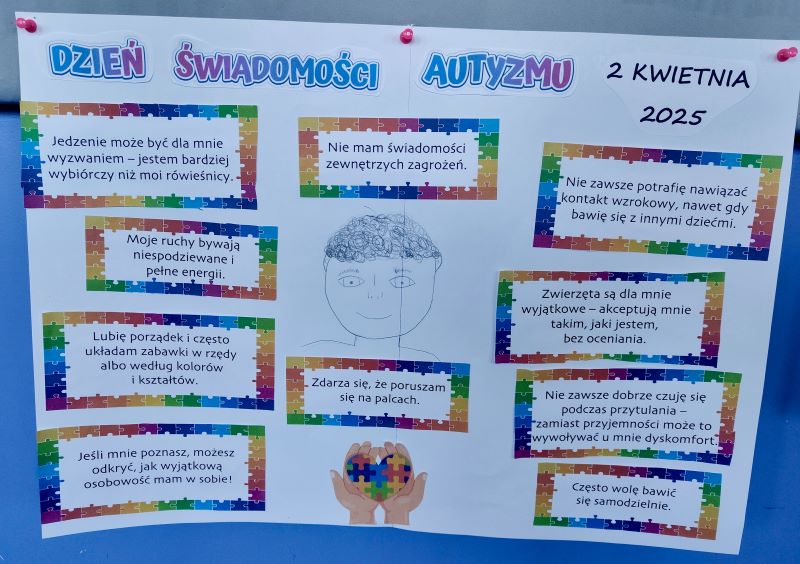 DZIEŃ ŚWIADOMOŚCI AUTYZMU
2 KWIETNIA
2025
Jedzenie może być dla mnie
wyzwaniem – jestem bardziej
wybiórczy niż moi rówieśnicy.
Nie mam świadomości
zewnętrznych zagrożeń.
Nie zawsze potrafię nawiązać
kontakt wzrokowy, nawet gdy
bawię się z innymi dziećmi.
Moje ruchy bywają
niespodziewane i
pełne energii.
Zwierzęta są dla mnie
wyjątkowe – akceptują mnie
takim, jaki jestem,
bez oceniania.
Lubię porządek i często
układam zabawki w rzędy
albo według kolorów
i kształtów.
Zdarza się, że poruszam
się na palcach.
Nie zawsze dobrze czuję się
podczas przytulania –
zamiast przyjemności może to
wywoływać u mnie dyskomfort.
Jeśli mnie poznasz, możesz
odkryć, jak wyjątkową
osobowość mam w sobie!
Często wolę bawić
się samodzielnie.